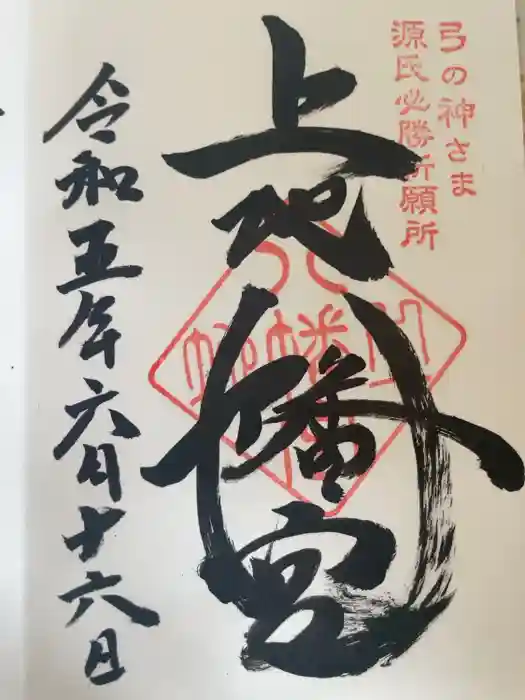 弓の神さま
源氏必勝祈願所
上地八幡宮
令和五年六月十六日